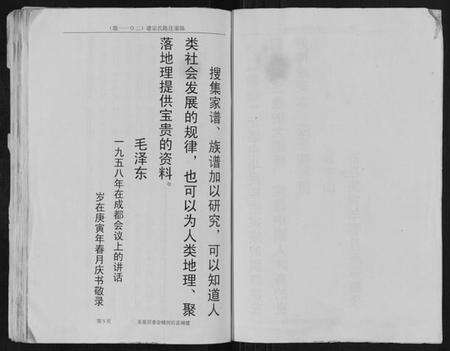 搜集家谱、族谱加以研究，可以知道人
类社会发展的规律，也可以为人类地理、聚
落地理提供宝贵的资料。
毛泽东
一九五八年在成都会议上的讲话
岁在庚寅年春月庆书敬录
第5页